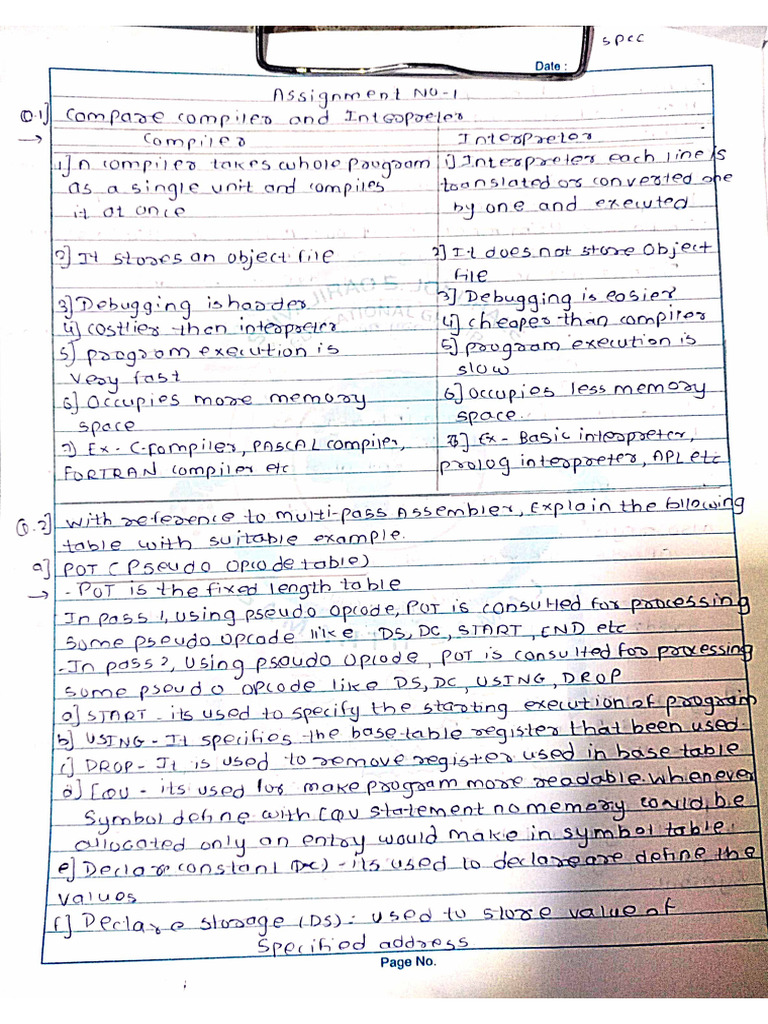 SPCC
Date :
Assignment No-1
Q.1] Compare compiler and Interpreter
→ Compiler Interpreter
1] In compiler takes whole program
as a single unit and compiles
it at once
1) Interpreter each line is
translated or converted one
by one and executed
2] It stores an object file
2] It does not store object
file
3] Debugging is harder
3] Debugging is easier
4] costlier then interpreter
4] cheaper than compiler
5] program execution is
very fast
5] program execution is
slow
6] Occupies more memory
space
6] Occupies less memory
space.
7) Ex - C-compiler, PASCAL compiler,
FORTRAN compiler etc
7] Ex - Basic interpreter,
prolog interpreter, APL etc
Q.2] with reference to multi-pass Assembler, Explain the following
table with suitable example.
a] POT (Pseudo opcode table)
→ - POT is the fixed length table
In pass 1, using pseudo opcode, POT is consulted for processing
some pseudo opcode like DS, DC, START, END etc
- In pass 2, using pseudo opcode, POT is consulted for processing
some pseudo opcode like DS, DC, USING, DROP
a) START - its used to specify the starting execution of program
b] USING - It specifies the base table register that been used.
c] DROP - It is used to remove register used in base table
d] EQU - its used for make program more readable. Whenever
symbol define with EQU statement no memory could be
allocated only an entry would make in symbol table.
e] Declare constant (DC) - its used to declare are define the
values
f] Declare storage (DS): used to store value of
specified address
Page No.